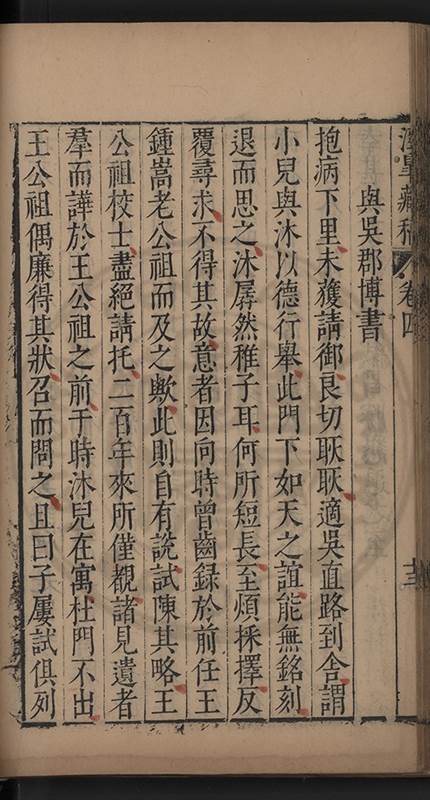 藏稿 卷四 十三
與吳郡博書
抱病下里未獲請御良切耿耿適吳直路到舍謂
小兒與沐以德行舉此門下如天之誼能無銘刻
退而思之沐孱然稚子耳何所短長至煩採擇反
覆尋求不得其故意者因向時曾齒錄於前任王
鍾嵩老公祖而及之歟此則自有說試陳其略王
公祖校士盡絕請托二百年來所僅覩諸見遺者
羣而譁於王公祖之前于時沐兒在寓杜門不出
王公祖偶廉得其狀召而問之且曰子屢試俱列